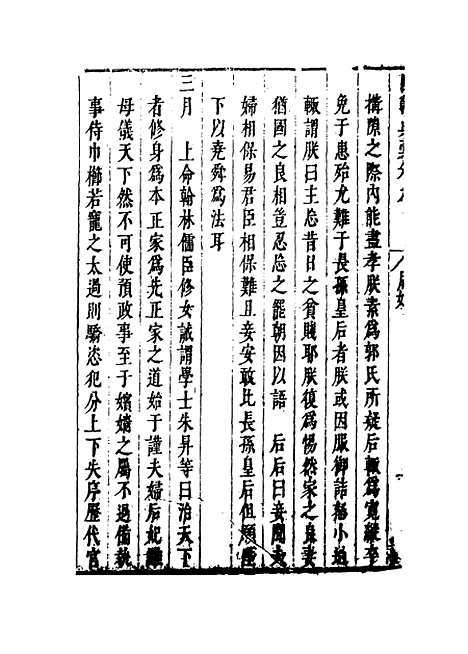 搆隙之際內能盡孝朕素為郭氏所疑后輙為寬解卒
免于患殆尤難于長孫皇后者朕或因服御詰
小過
輙謂朕曰主忘昔日之貧賤耶朕復為惕然家之良妻
猶國之良相豈忍忘之罷朝因以語 后后曰妾聞夫
婦相保易君臣相保難且妾安敢比長孫皇后但願陛
下以堯舜為法耳
三月 上命翰林儒臣修女誡謂學士朱昇等曰治天下
者修身為本正家為先正家之道始于謹夫婦后妃雖
母儀天下然不可使預政事至于嬪嬙之屬不過備執
事侍巾櫛若寵之太過則驕恣犯分上下失序歷代宮